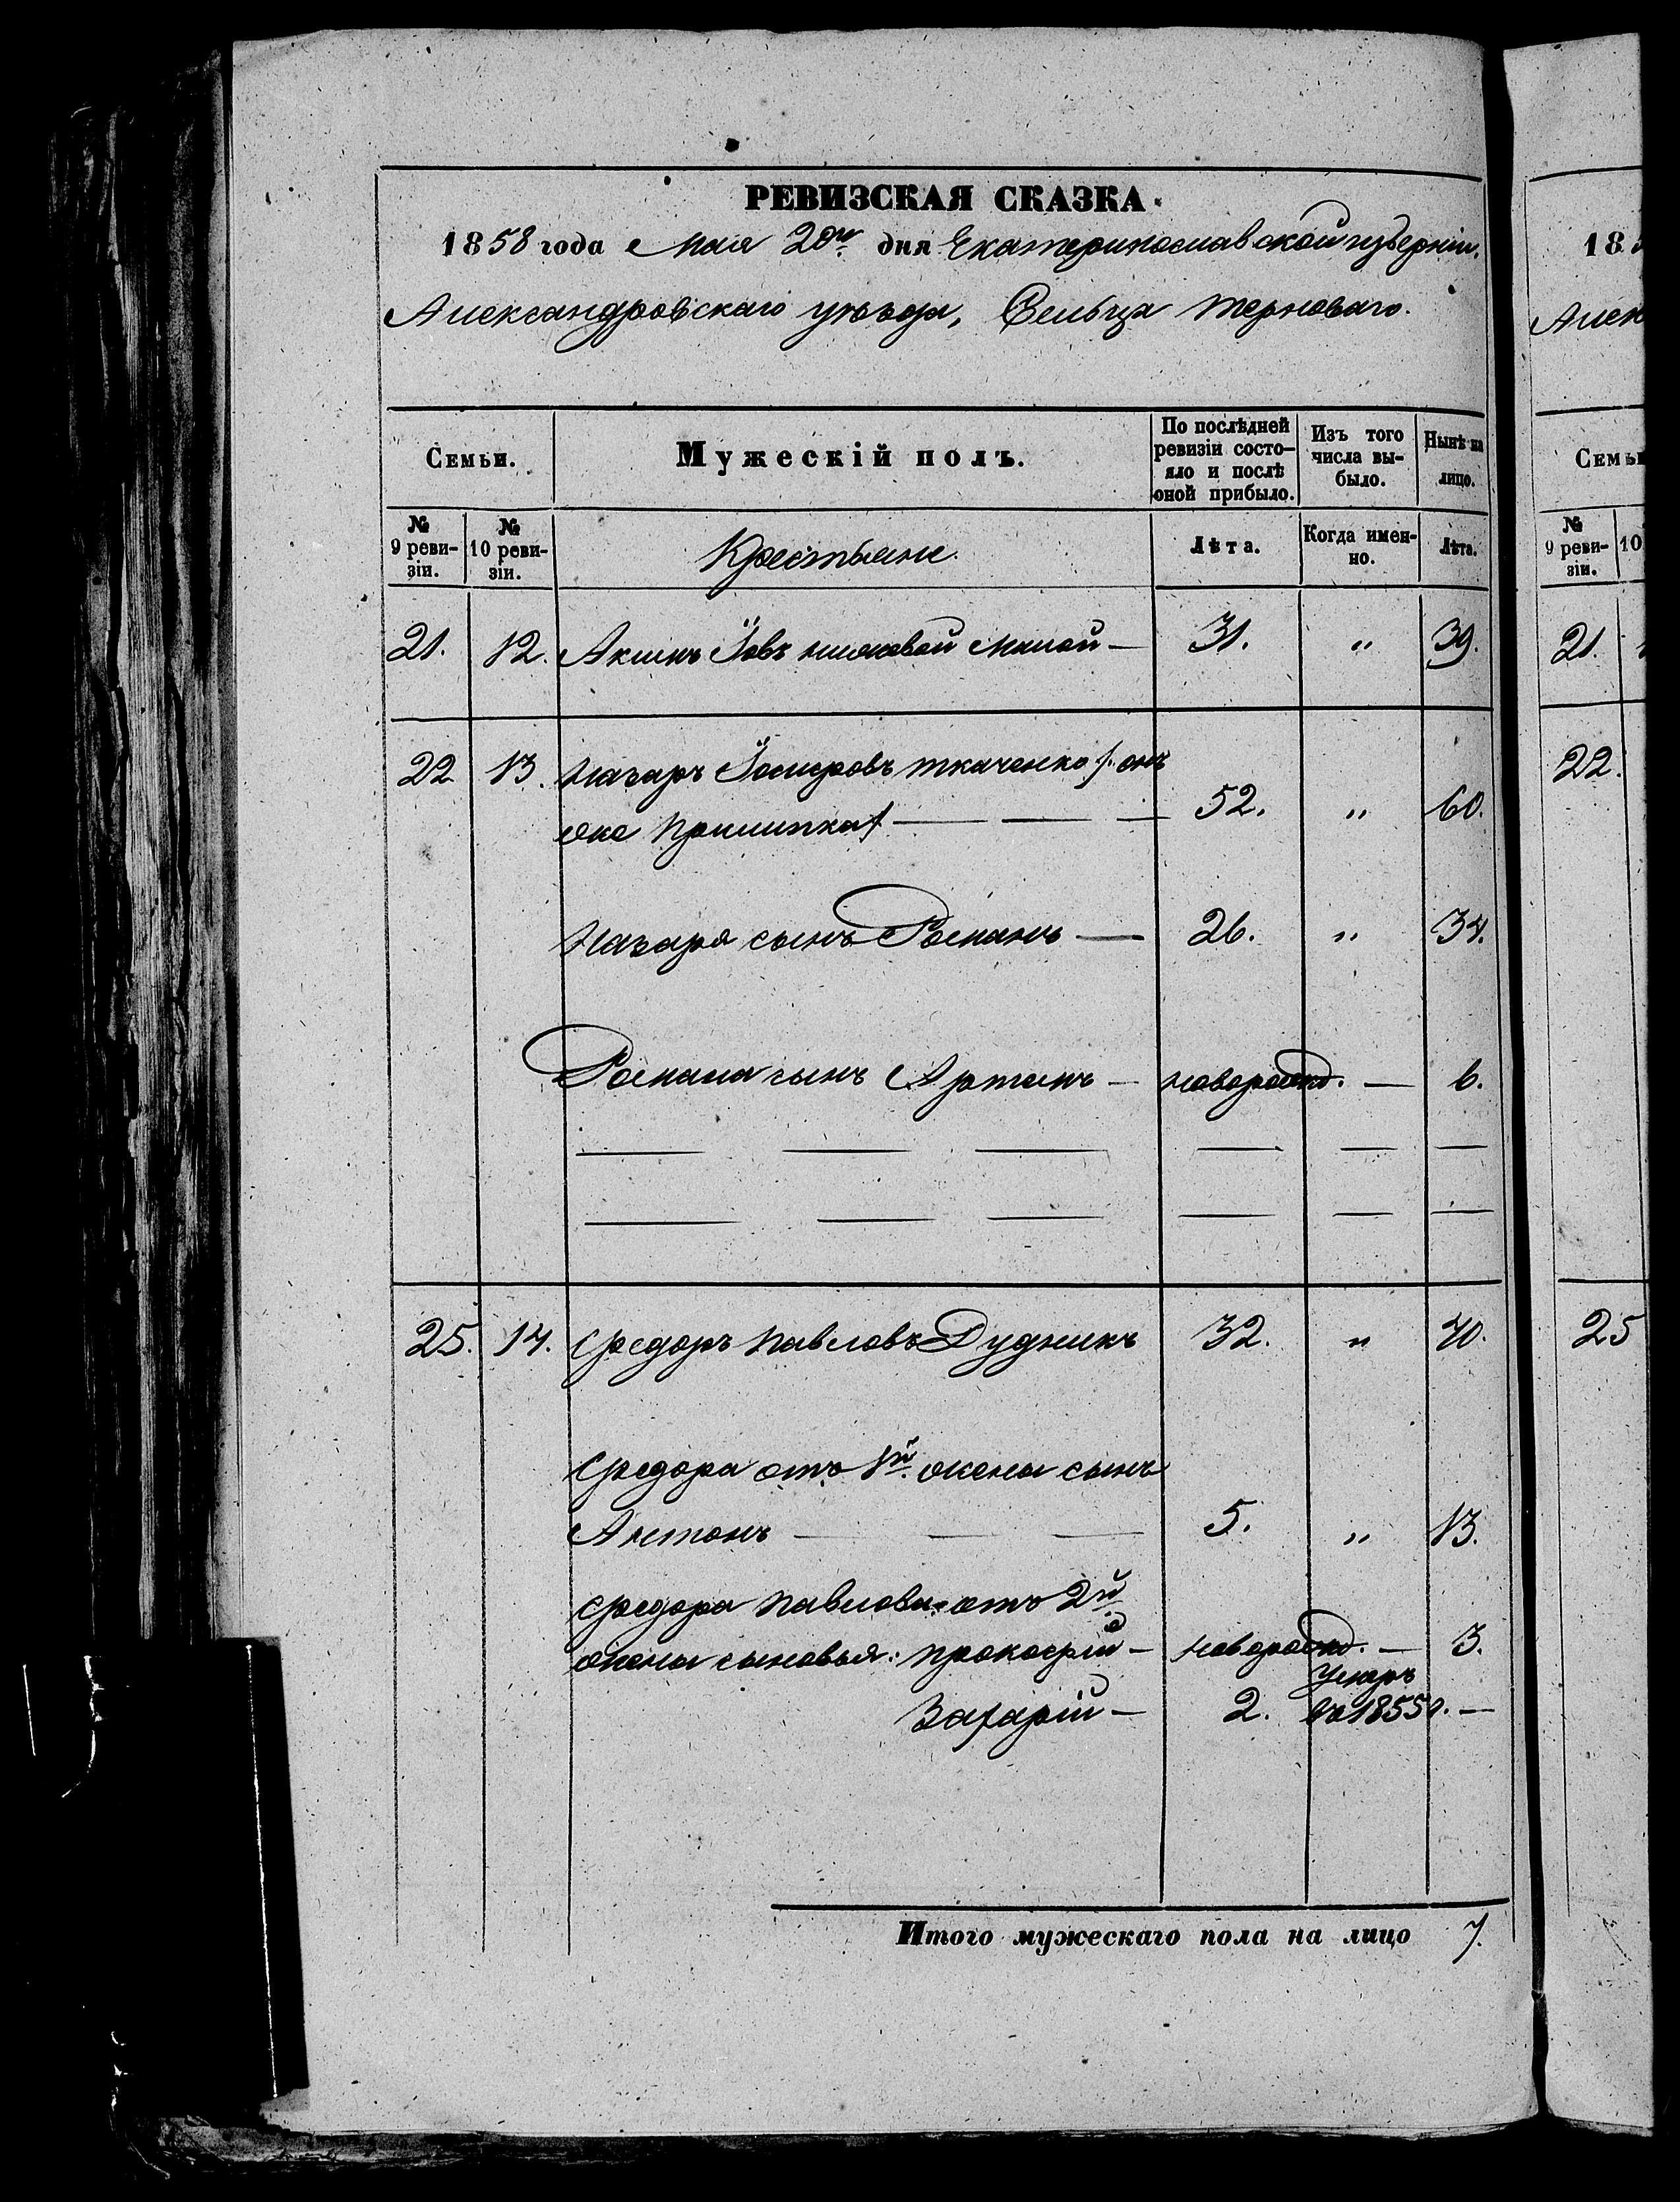 РЕВИЗСКАЯ СКАЗКА.
1858 года Мая 20го дня Екатеринославской губерніи,
Александровскаго уѣзда, Сельца Терноваго.
Семьи. Мужескій полъ. По послѣдней ревизіи состо- яло и послѣ оной прибыло. Изъ того числа вы- было. Нынѣ на лицо.
№ 9 реви- зіи. № 10 реви- зіи. Крестьяне. Лѣта. Когда имен- но. Лѣта.
21. 12. Акимъ Іовъ Малой — 31. „ 39.
22 13. Назаръ ткаченко /: онъ
же / — — — 52. „ 60.
Назара сынъ Романъ — 26. „ 34.
Романа сынъ Артемъ — новорожд. — 6.
— — — — — —
— — — — — —
25. 14. Федоръ Павловъ Дудникъ 32. „ 40.
Федора отъ 1й. жены сынъ
Антонъ — — — 5. „ 13.
Федора Павлова отъ 2й
жены сыновья: Прокофій — новорожд. — 3.
Умеръ
Захарій — 2. въ 1855 г. —
Итого мужескаго пола на лицо 7.
185
Алек
Семьи
№ 9 реви- зіи. 10
21. 1
22.
25